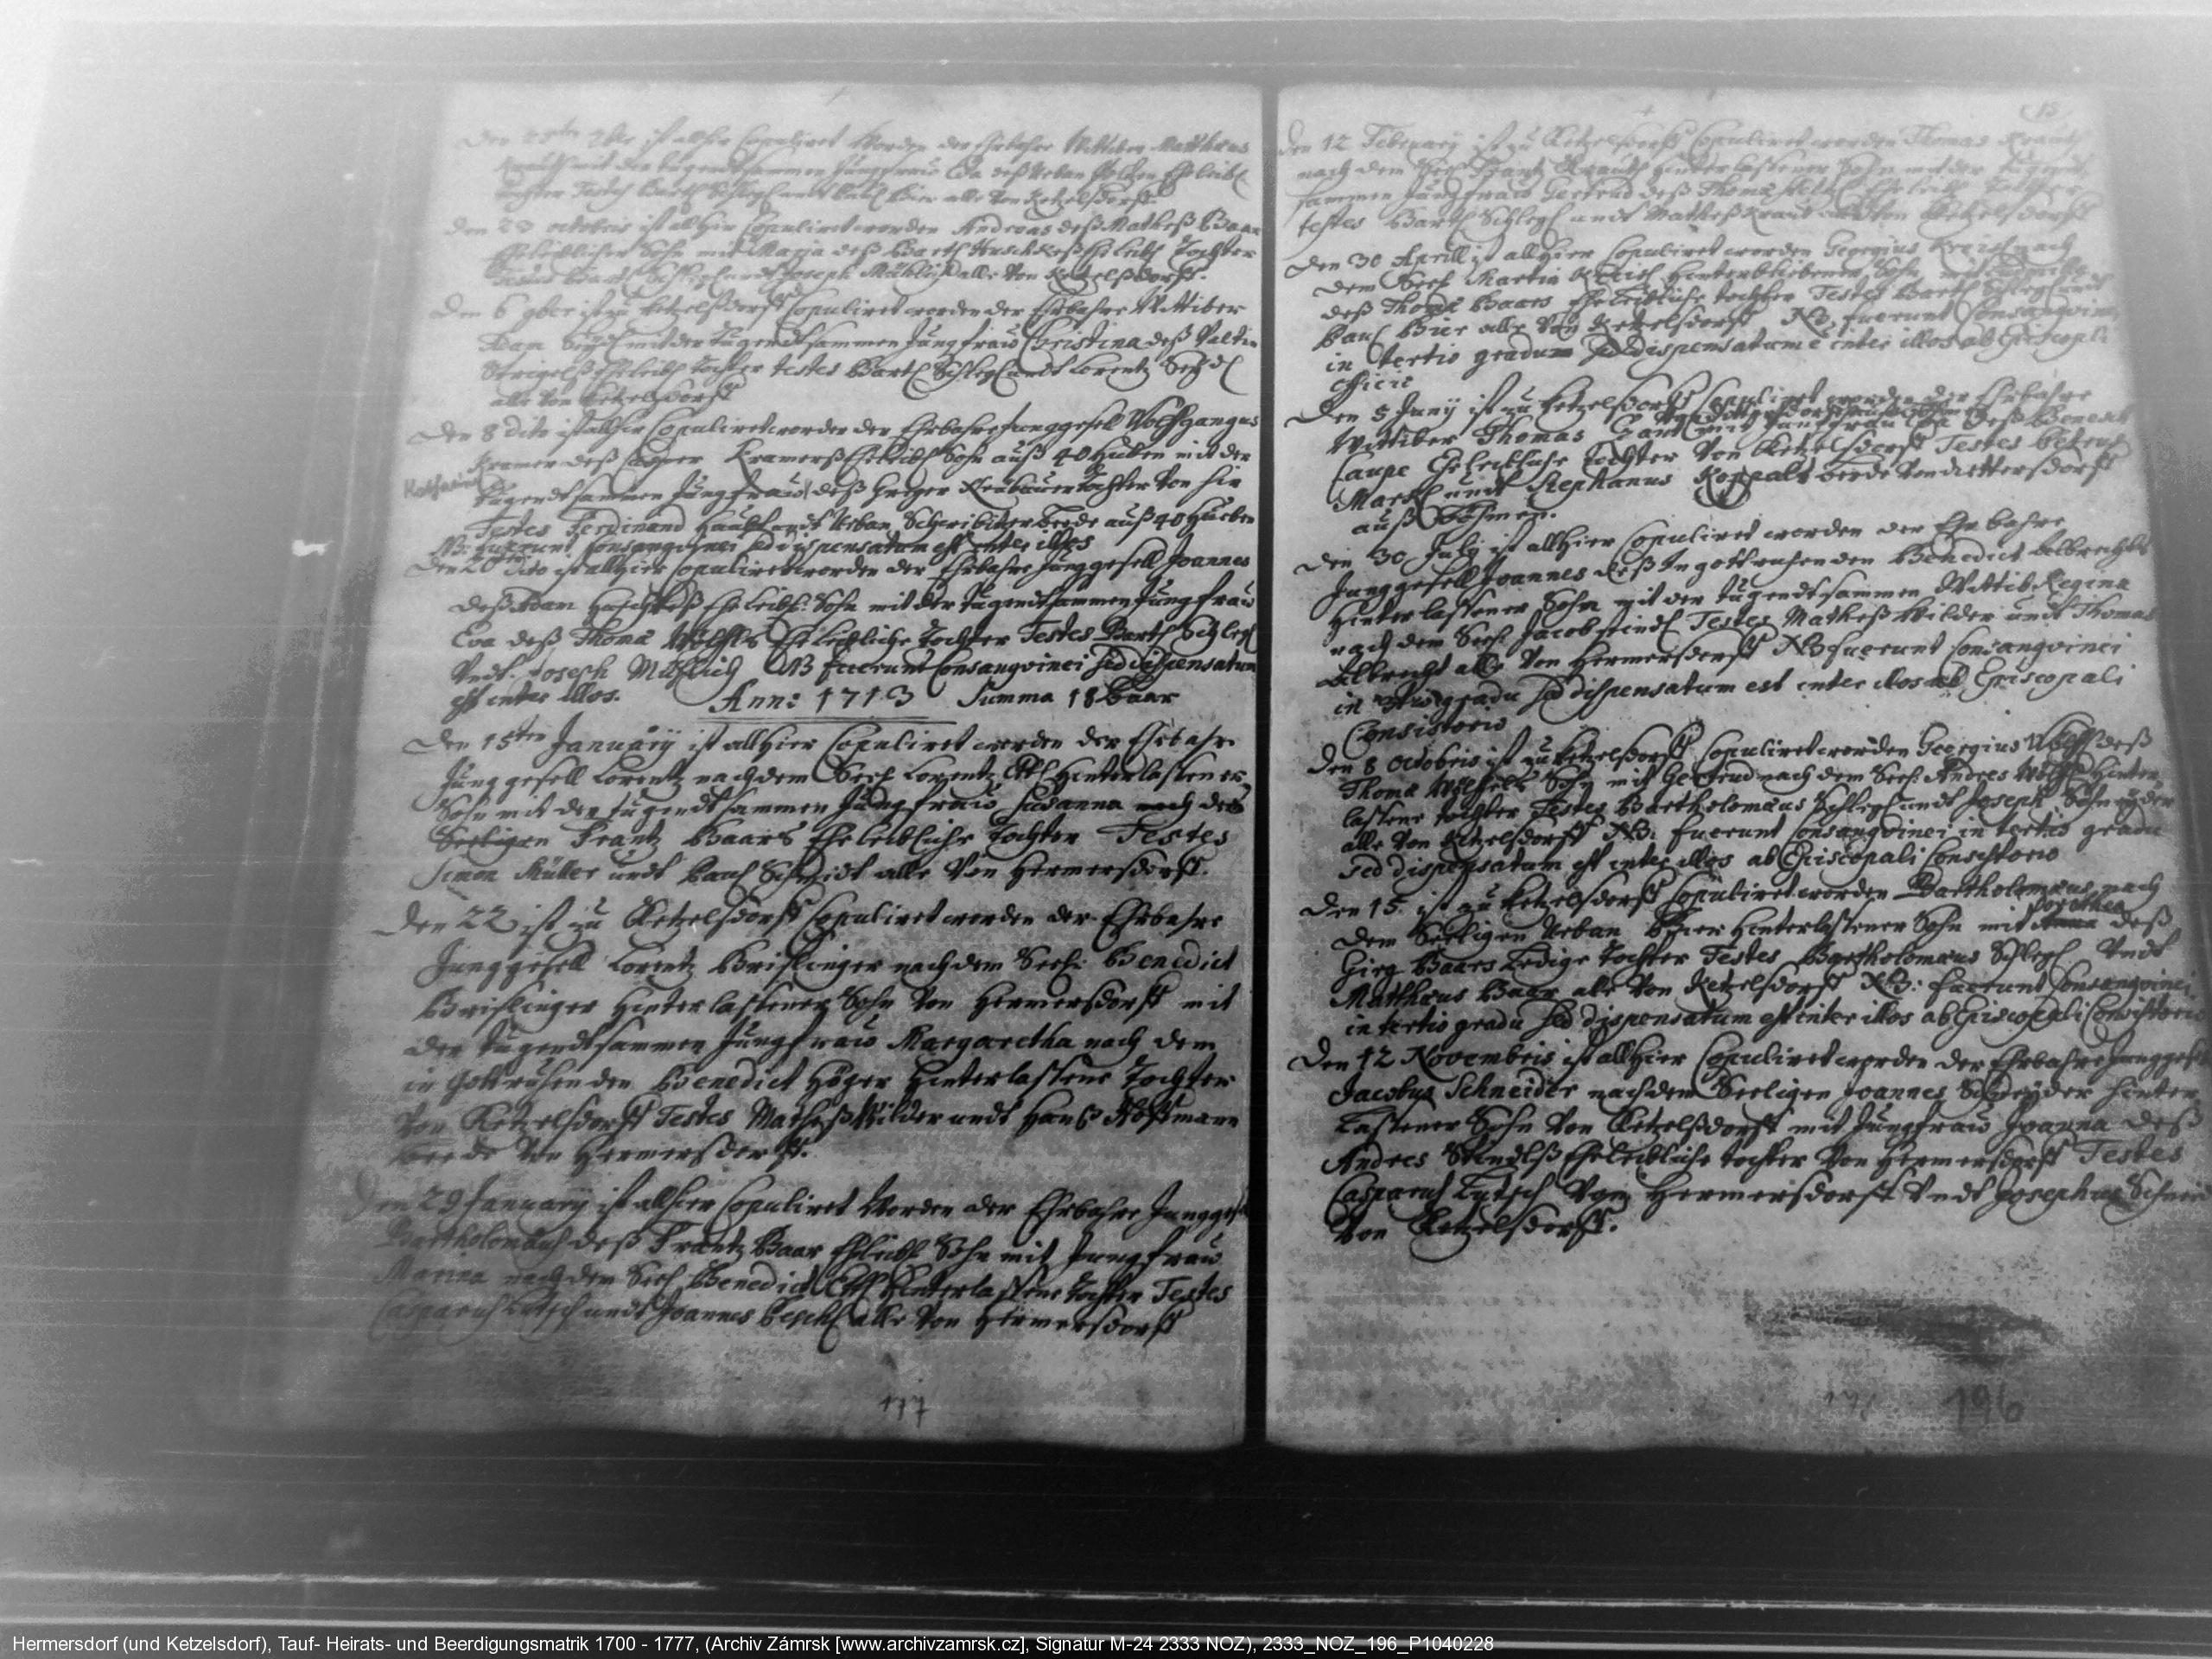 Den 25ten 7ber ist allhir Copuliret Worden der Ehrbahre Wittiber Matthæus
mit der tugendtsammen Jungfraw Eva deß Urban Eheleibl
tochter Testes Bartl Schlegl undt Paul Bier alle Von Ketzelsdorff
Den 23 octobris ist allhir Copuliret worden Andreas deß Matheß Baar
Eheleiblicher Sohn mit Maria deß Bartl Eheleibl Tochter
Bartl Schlegl undt Joseph alle Von Ketzelßdorff.
Den 6 9ber ist zu Ketzelßdorff Copuliret worden der Ehrbahre Wittiber
Adam mit der Tugendtsammen Jungfraw Christina deß Valtin
Eheleibl tochter testes Bartl Schlegl undt Lorentz
alle Von Ketzelsdorff
Den 8 dito ist allhir Copuliret worden der Ehrbahre Junggesell Wolffgangus
Kramer deß Casper Kramerß Eheleibl Sohn auß 40 Huben mit der
Katharina
tugendtsammen Jungfraw deß Greger Neübauer tochter Von hir
Testes Ferdinand undt Urban beede auß 40 Hueben
NB: fuerunt Consangvinei sed dispensatum est inter illos
Den 20 dito ist allhier Copuliret worden der Ehrbahre Junggesell Joannes
deß Adam Eheleibl: Sohn mit der tugendtsammen Jungfraw
Eva deß Thoma Wölffls Eheleibliche Tochter Testes Bartl Schlegl
Undt Joseph NB fuerunt Consangvinei sed dispensatum
est inter illos.
Ann: 1713 Summa 18 Paar
Den 15ten Januarij ist allhier Copuliret worden der Ehrbahre
Jung gesell Lorentz nach dem Seel Lorentz Hinterlassener
Sohn mit der tugendtsammen Jungfraw Susanna nach des
Seeligen Frantz Baars Eheleibliche Tochter Testes
Simon Müller undt Paul Schmidt alle Von Hermersdorff.
Den 22 ist zu Ketzelsdorff Copuliret worden der Ehrbahre
Junggesell Lorentz Brislinger nach dem Seel: Benedict
Brislinger Hinterlassener Sohn Von Hermersdorff mit
der tugendtsammen Jungfraw Margaretha nach dem
in Gott ruhenden Benedict Höger Hinterlassene Tochter
Von Ketzelsdorff Testes Matheß Wilder undt Hanß Hoffmann
beede Von Hermersdorff.
Den 29 Januarij ist allhier Copuliret Worden der Ehrbahre Jungges
Bartholomæus deß Frantz Baar Eheleibl Sohn mit Jungfraw
Marina nach dem Seel Benedict Hinterlassene tochter Testes
Casparus undt Joannes alle Von Hermersdorff
177
Den 12 Februarij ist zu Ketzelsdorff Copuliret worden Thomas
nach dem Seel Frantz Hinterlassener Sohn mit der tugendt
sammen Jungfraw Gertrud deß Thoma Eheleibl Tochter
testes Bartl Schlegl undt Matheß Von Ketzelsdorff
Den 30 Aprill ist allhier Copuliret worden Georgius nach
dem Seel Martin Hinterbliebener Sohn mit
deß Thoma Baars Eheleibliche tochter Testes Bartl Schlegl undt
Paul Bier alle Von Ketzelsdorff NB, fuerunt Consangvinei
in tertio gradu sed dispensatum e inter illos ab Episcopali
officio
Den 5 Junij ist zu Ketzelsdorff Copuliret worden der Ehrbahre
Wittiber Thomas mit Jungfraw Eva deß Benedict
Laupe Eheleibliche Tochter Von Ketzelsdorff Testes
undt Stephanus beede Von
auß Böhmen.
Den 30 Julij ist allhier Copuliret worden der Ehrbahre
Junggesell Joannes deß In gott ruhenden Benedict Albrechts
Hinterlassener Sohn mit der tugendtsammen Wittib Regina
nach dem Seel: Jacob Testes Matheß Wilder undt Thomas
Albrecht alle Von Hermersdorff NB fuerunt Consangvinei
in gradu sed dispensatum est inter illos ab Episcopali
Consistorio
Den 8 octobris ist zu Ketzelsdorff Copuliret worden Georgius Wölffl deß
Thoma Wölffels Sohn mit Gertrud nach dem Seel: Andres Wölffl Hinter
lassene tochter Testes Bartholomæus Schlegl undt Joseph Schneyder
alle Von Ketzelsdorff NB: fuerunt Consangvinei in tertio gradu
sed dispensatum est inter illos ab Episcopali Consistorio
Den 15 ist zu Ketzelsdorff Copuliret worden Bartholomæus nach
dem Seeligen Urban Bier Hinterlassener Sohn mit Dorothea deß
Girg Baars Ledige Tochter Testes Bartholomæus Schlegl Undt
Matthæus Baar alle Von Ketzelsdorff NB: fuerunt Consangvinei
in tertio gradu sed dispensatum est inter illos ab Episcopali Consistorio
Den 12 Novembris ist allhier Copuliret worden der Ehrbahre Jungges
Jacobus Schneider nach dem Seeligen Joannes Schneyder Hinter
Lassener Sohn Von Ketzelßdorff mit Jungfraw Joanna deß
Andres Eheleibliche tochter Von Hermersdorff Testes
Casparus Von Hermersdorff Undt Josephus
Von Ketzelsdorff.
196
Hermersdorf (und Ketzelsdorf), Tauf- Heirats- und Beerdigungsmatrik 1700 - 1777, (Archiv Zámrsk [www.archivzamrsk.cz], Signatur M-24 2333 NOZ), 2333_NOZ_196_P1040228